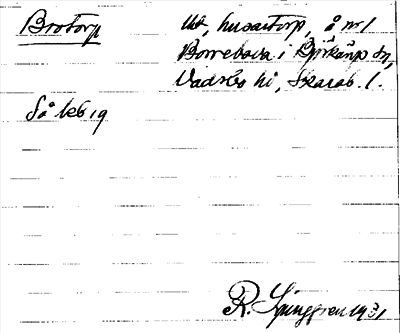 Brotorp
Utj, husartorp, å nr 1
Borrebova i Björkängs sn,
Vadsbo hd, Skarab. l.
Så kb 19
R. Ljunggren 1931